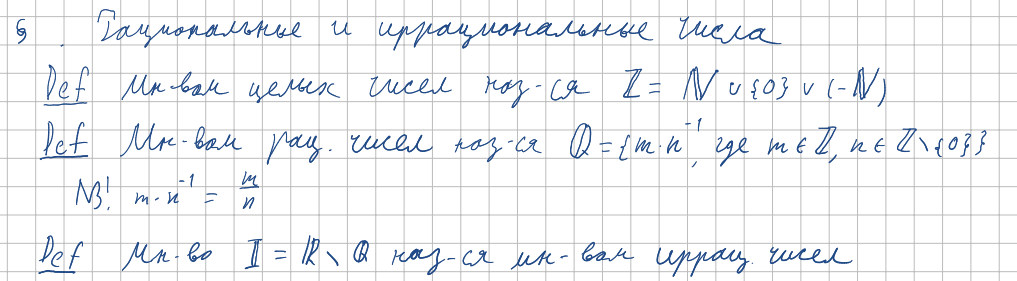 §. Рациональные и иррациональные числа
Def Мн-вом целых чисел наз-ся ℤ = ℕ ∪ {0} ∪ (-ℕ)
Def Мн-вом рац. чисел наз-ся ℚ = {m·n⁻¹, где m ∈ ℤ, n ∈ ℤ \ {0}}
NB! m·n⁻¹ = m/n
Def Мн-во 𝕀 = ℝ \ ℚ наз-ся мн-вом иррац. чисел